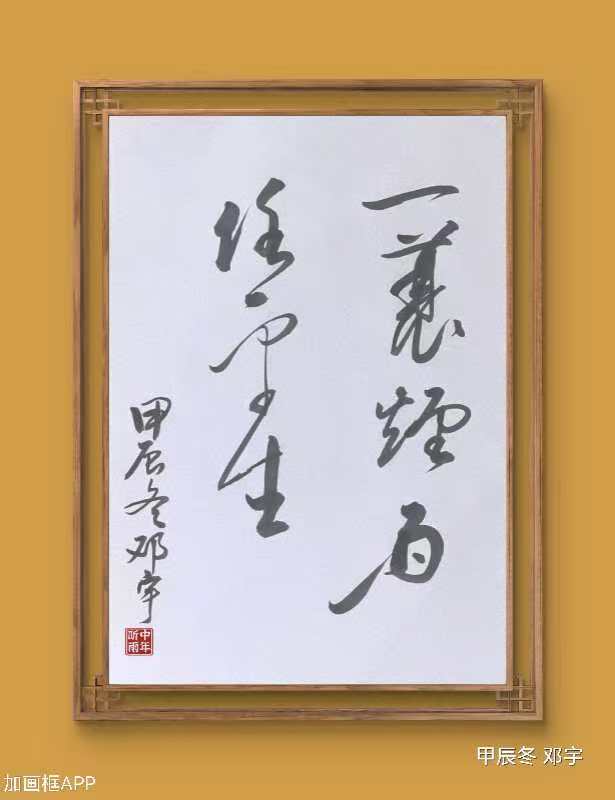 一蓑煙雨
任平生
甲辰冬邓宇
中年
听雨
甲辰冬 邓宇
加画框APP